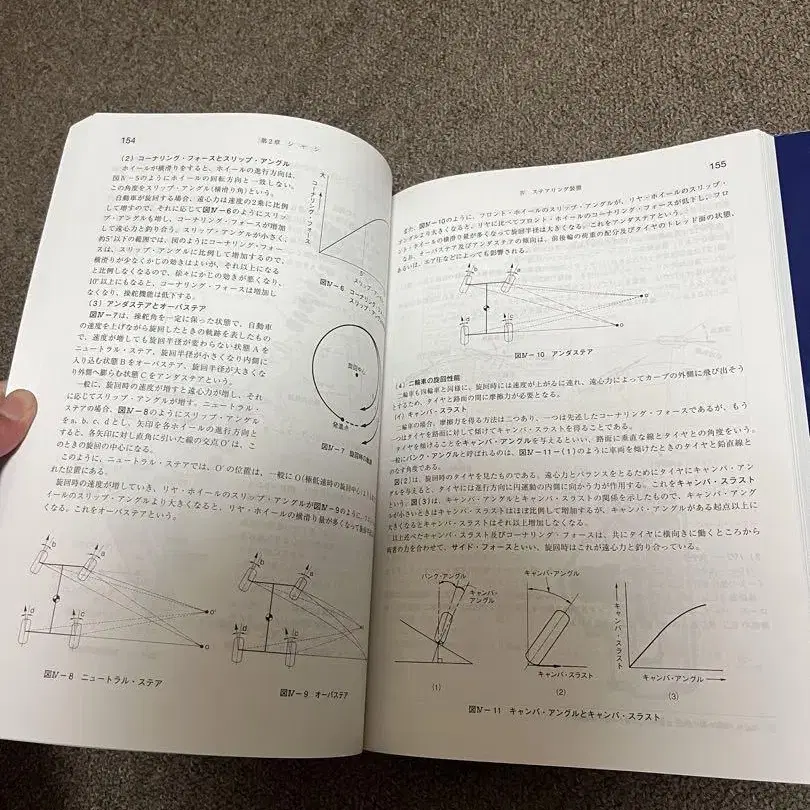 154
第2章 シャシ
(2) コーナリング・フォースとスリップ・アングル
ホイールが横滑りをすると、ホイールの進行方向は、
図Ⅳ-5のようにホイールの回転方向と一致しない。
この角度をスリップ・アングル(横滑り角)という。
自動車が旋回する場合、遠心力は速度の2乗に比例
して増すので、それに応じて図Ⅳ-6のようにスリッ
プ・アングルも増し、コーナリング・フォースが増加
して遠心力と釣り合う。スリップ・アングルが小さく、
約5°以下の範囲では、図のようにコーナリング・フォー
スは、スリップ・アングルに比例して増加するので、
横滑りが少なくかじの効きはよいが、それ以上になる
と比例しなくなるので、徐々にかじの効きが悪くなり、
10°以上にもなると、コーナリング・フォースは増加し
なくなり、操舵機能は低下する。
大
コーナリング・フォース
O
図Ⅳ-6 コーナリング・フォ
スリップ・アン
(3) アンダステアとオーバステア
図Ⅳ-7は、操舵角を一定に保った状態で、自動車
の速度を上げながら旋回したときの軌跡を表したもの
で、速度が増しても旋回半径が変わらない状態Aを
ニュートラル・ステア、旋回半径が小さくなり内側に
入り込む状態Bをオーバステア、旋回半径が大きくな
り外側へ膨らむ状態Cをアンダステアという。
一般に、旋回時の速度が増すと遠心力が増し、それ
に応じてスリップ・アングルが増す。ニュートラル・
ステアの場合、図Ⅳ-8のようにスリップ・アングル
をa、b、c、dとし、矢印を各ホイールの進行方向と
すると、各矢印に対し直角に引いた線の交点O'は、こ
のときの旋回の中心になる。
旋回中心
発進点
図Ⅳ-7 旋回時の軌跡
このように、ニュートラル・ステアでは、O'の位置は、一般にO(極低速時の旋回中心)より
れた位置にある。
旋回時の速度が増していき、リヤ・ホイールのスリップ・アングルが図Ⅳ-9のように、フロ
イールのスリップ・アングルより大きくなると、リヤ・ホイールの横滑り量が多くなって旋回
くなる。これをオーバステアという。
b
a
d
c
O'
O
図Ⅳ-8 ニュートラル・ステア
b
a
d
c
図Ⅳ-9 オーバステア
155
Ⅳ ステアリング装置
また、図Ⅳ-10のように、フロント・ホイールのスリップ・アングルが、リヤ・ホイールのスリップ・
アングルより大きくなると、リヤに比べてフロント・ホイールのコーナリング・フォースが低下し、フロ
ント・ホイールの横滑り量が多くなって旋回半径は大きくなる。これをアンダステアという。
なお、オーバステア及びアンダステアの傾向は、前後輪の荷重の配分及びタイヤのトレッド面の状態、
あるいは、エア圧などによっても影響される。
b
a
d
c
O'
O
図Ⅳ-10 アンダステア
(4) 二輪車の旋回性能
二輪車も四輪車と同様に、旋回時には速度が上がるに連れ、遠心力によってカーブの外側に飛び出そう
とするため、タイヤと路面の間に摩擦力が必要となる。
(イ) キャンバ・スラスト
二輪車の場合、摩擦力を得る方法は二つあり、一つは先述したコーナリング・フォースであるが、もう
一つはタイヤを路面に対して傾けてキャンバ・スラストを得ることである。
タイヤを傾けることをキャンバ・アングルを与えるといい、路面に垂直な線とタイヤとの角度をいう。
一般にバンク・アングルと呼ばれるのは、図Ⅳ-11-(1)のように車両を傾けたときのタイヤと鉛直線と
のなす角度である。
図(2)は、旋回時のタイヤを見たものである。遠心力とバランスをとるためにタイヤにキャンバ・アン
グルを与えると、タイヤには進行方向に円運動の内側に向かう力が作用する。これをキャンバ・スラスト
という。図(3)は、キャンバ・アングルとキャンバ・スラストの関係を示したもので、キャンバ・アング
ルが小さいときはキャンバ・スラストはほぼ比例して増加するが、キャンバ・アングルがある起点以上に
大きくなるとキャンバ・スラストはそれ以上増加しなくなる。
以上述べたキャンバ・スラスト及びコーナリング・フォースは、共にタイヤに横向きに働くところから
両者の力を合わせて、サイド・フォースといい、旋回時はこれが遠心力と釣り合っている。
バンク・アングル
キャンバ・
アングル
(1)
キャンバ・アングル
キャンバ・スラスト
(2)
キャンバ・スラスト
キャンバ・アングル
(3)
図Ⅳ-11 キャンバ・アングルとキャンバ・スラスト